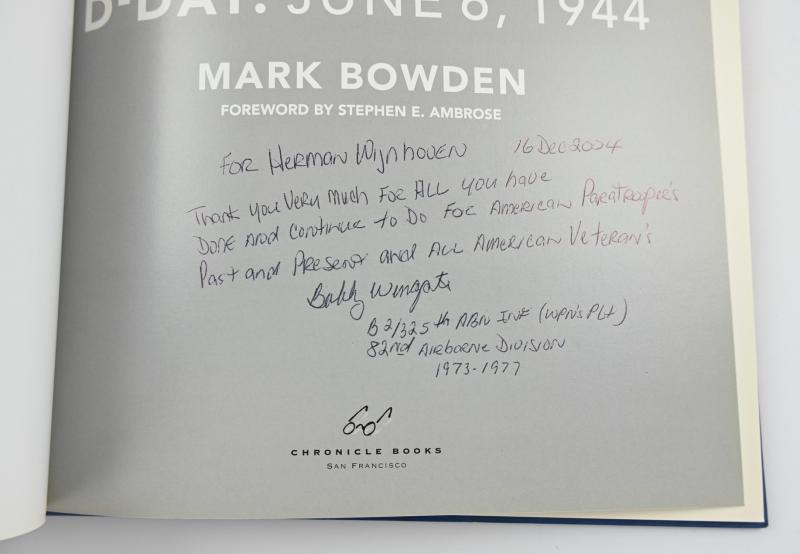 D-DAY: JUNE 6, 1944
MARK BOWDEN
FOREWORD BY STEPHEN E. AMBROSE
FOR HERMAN WIJNHOVEN 16 DEC 2004
THANK YOU VERY MUCH FOR ALL YOU HAVE
DONE AND CONTINUE TO DO FOR AMERICAN PARATROOPER'S
PAST AND PRESENT AND ALL AMERICAN VETERAN'S
Bobby Wingate
B 2/325th ABN INF (WPN'S PLT)
82nd AIRBORNE DIVISION
1973-1977
CHRONICLE BOOKS
SAN FRANCISCO